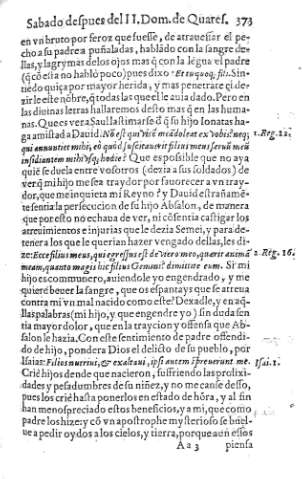 Sabado despues del II. Dom. de Quares. 373
en vn bruto por feroz que fuesse, de atrauessar el pe-
cho a su padre a puñaladas, hablãdo con la sangre de
llas, y lagrymas de los ojos mas q̃ con la lẽgua el padre
(q̃ cõ esta no hablò poco) pues dixo Et tu quoq, fili. Sin-
tiẽdo quiça por mayor herida, y mas penetrãte el de-
zir le este nõbre, q̃ todas las que el le auia dado. Pero en
las diuinas letras hallaremos desto mas q̃ en las huma-
nas. Que es ver a Saul lastimarse d̃ q̃ su hijo Ionatas ha-
ga amistad a Dauid. Nõ est qui vicẽ meã doleat ex vobis: neq; 1. Reg. 22.
qui annuntiet mihi, eò quòd suscitauerit filius meus seruũ meũ
insidiantem mihi vsq; hodie? Que es posible que no aya
quiẽ se duela entre vosotros (dezia a sus soldados) de
ver q̃ mi hijo me sea traydor por fauorecer a vn tray-
dor, que me inquieta mi Reyno? y Dauid estrañamẽ-
te sentia la persecucion de su hijo Absalon, de manera
que por esto no echaua de ver, ni cõsentia castigar los
atreuimientos e injurias que le dezia Semei, y para de-
tener a los que le querian hazer vengado dellas, les di-
ze: Ecce filius meus, qui egressus est de vtero meo, quærit animã 2. Reg. 16.
meam, quanto magis hic filius Gemini? dimittite eum. Si mi
hijo es commuñero, auiendole yo engendrado, y me
quiere beuer la sangre, que os espantays que se atreua
contra mi vn mal nacido como este? Dexadle, y en aq̃-
llas palabras (mi hijo, y que engendre yo) sin duda sen
tia mayor dolor, que en la traycion y offensa que Ab-
salon le hazia. Con este sentimiento de padre offendi-
do de hijo, pondera Dios el delicto de su pueblo, por
Isaias: Filios nutriui, & exaltaui, ipsi autem spreuerunt me. Isai. 1.
Crié hijos dende que nacieron, suffriendo las prolixi-
dades y pesadumbres de su niñez, y no me canse desso,
pues los crié hasta ponerlos en estado de hõra, y al fin
han menospreciado estos beneficios, y a mi, que como
padre los hize: y cõ vn apostrophe mysterioso se buel-
ue a pedir oydos a los cielos, y tierra, porque aun essos
Aa 3 piensa